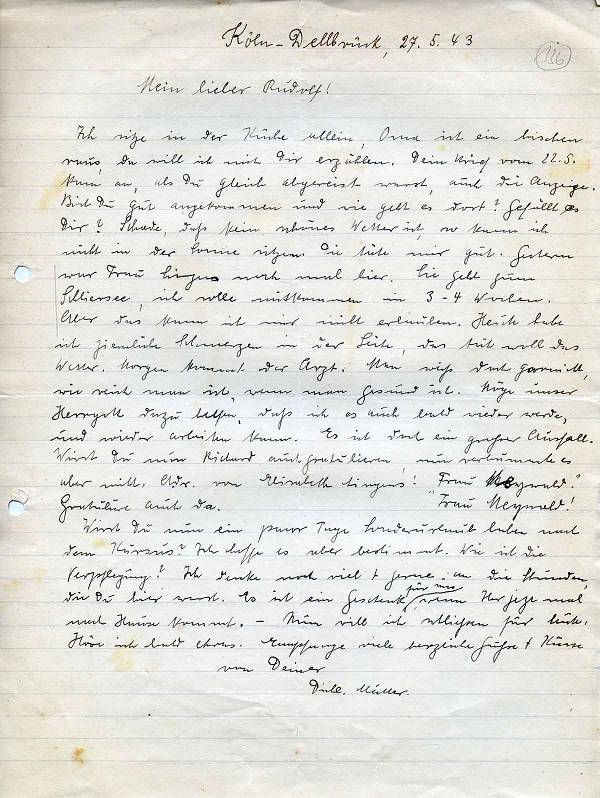 Köln-Dellbrück, 27.5.43
136
Mein lieber Rudolf!
Ich sitze in der Küche allein, Oma ist ein bischen
raus, da will ich mit Dir erzählen. Dein Brief vom 22.5.
kam an, als Du gleich abgereist warst, auch die Anzeige.
Bist Du gut angekommen und wie geht es dort? Gefällt es
Dir? Schade, daß kein schönes Wetter ist, so kann ich
nicht in der Sonne sitzen. Die täte mir gut. Gestern
war Frau noch mal hier. Sie geht zum
Schliersee, ich solle mitkommen in 3-4 Wochen.
Aber das kann ich mir nicht erlauben. Heute habe
ich ziemliche Schmerzen in der Seite, das tut wohl das
Wetter. Morgen kommt der Arzt. Man weiß doch garnicht,
wie reich man ist, wenn man gesund ist. Möge unser
Herrgott dazu helfen, daß ich es auch bald wieder werde,
und wieder arbeiten kann. Es ist doch ein großer Ausfall.
Wirst Du nun Richard auch gratulieren, nun es
aber nicht. Adr. von Elisabeth : Frau Meywald."
Gratuliere auch da. "Frau Meywald!
Wirst Du nun ein paar Tage Sonderurlaub haben nach
dem Kursus? Ich hoffe es aber bestimmt. Wie ist die
Verpflegung? Ich denke noch viel + gerne an die Stunden,
die Du hier warst. Es ist ein Geschenk für uns, wenn Ihr jetzt mal
nach Hause kommt. - Nun will ich schließen für heute.
Höre ich bald etwas. Empfange viele herzliche Grüße + Küsse
von Deiner
Dich Mutter.